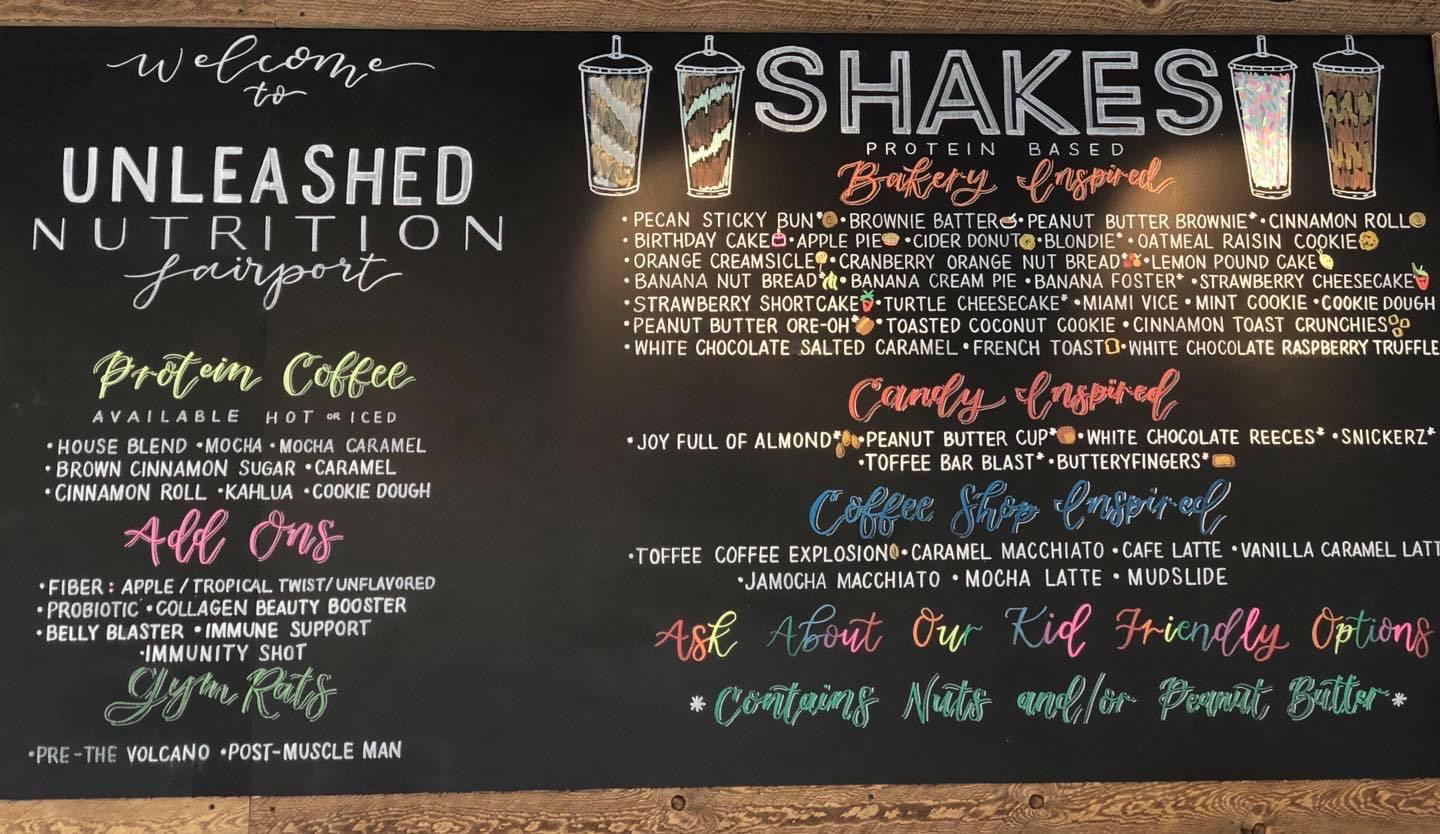 Welcome
to
UNLEASHED
NUTRITION
fairport
Protein Coffee
AVAILABLE HOT OR ICED
•HOUSE BLEND •MOCHA •MOCHA CARAMEL
•BROWN CINNAMON SUGAR •CARAMEL
•CINNAMON ROLL •KAHLUA •COOKIE DOUGH
Add Ons
•FIBER: APPLE/TROPICAL TWIST/UNFLAVORED
•PROBIOTIC •COLLAGEN BEAUTY BOOSTER
•BELLY BLASTER •IMMUNE SUPPORT
•IMMUNITY SHOT
Gym Rats
•PRE-THE VOLCANO •POST-MUSCLE MAN
SHAKES
PROTEIN BASED
Bakery Inspired
•PECAN STICKY BUN* •BROWNIE BATTER •PEANUT BUTTER BROWNIE* •CINNAMON ROLL
•BIRTHDAY CAKE •APPLE PIE •CIDER DONUT •BLONDIE* •OATMEAL RAISIN COOKIE
•ORANGE CREAMSICLE •CRANBERRY ORANGE NUT BREAD* •LEMON POUND CAKE
•BANANA NUT BREAD* •BANANA CREAM PIE •BANANA FOSTER* •STRAWBERRY CHEESECAKE
•STRAWBERRY SHORTCAKE •TURTLE CHEESECAKE* •MIAMI VICE •MINT COOKIE •COOKIE DOUGH
•PEANUT BUTTER ORE-OH* •TOASTED COCONUT COOKIE •CINNAMON TOAST CRUNCHIES
•WHITE CHOCOLATE SALTED CARAMEL •FRENCH TOAST •WHITE CHOCOLATE RASPBERRY TRUFFLE
Candy Inspired
•JOY FULL OF ALMOND* •PEANUT BUTTER CUP* •WHITE CHOCOLATE REECES* •SNICKERZ*
•TOFFEE BAR BLAST* •BUTTERYFINGERS*
Coffee Shop Inspired
•TOFFEE COFFEE EXPLOSION •CARAMEL MACCHIATO •CAFE LATTE •VANILLA CARAMEL LATT
•JAMOCHA MACCHIATO •MOCHA LATTE •MUDSLIDE
Ask About Our Kid Friendly Options
*Contains Nuts and/or Peanut Butter*